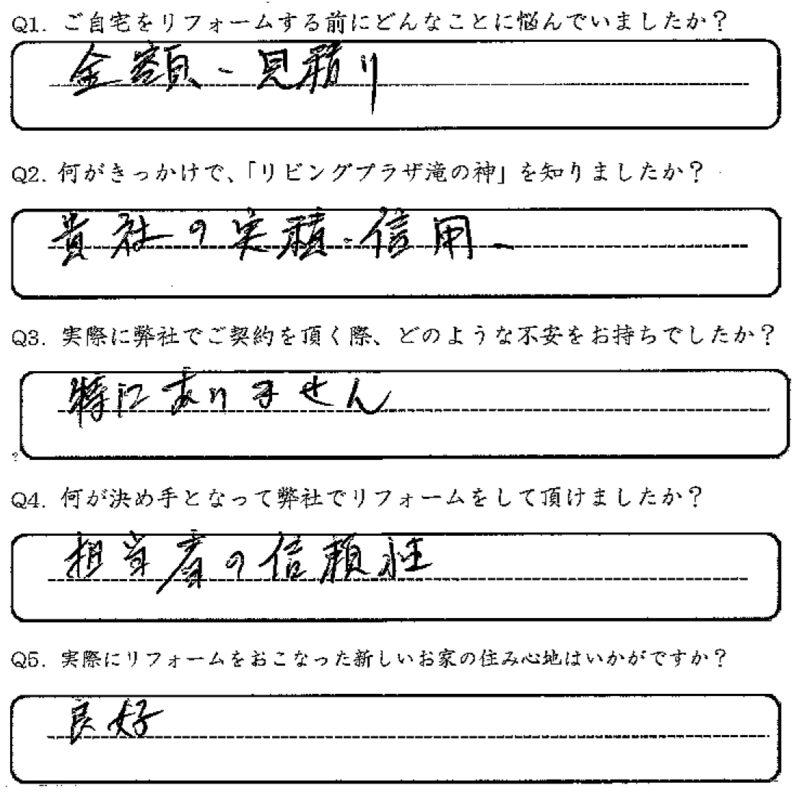 Q1. ご自宅をリフォームする前にどんなことに悩んでいましたか？
金額、見積り
Q2. 何がきっかけで、「リビングプラザ滝の神」を知りましたか？
貴社の実積、信用、
Q3. 実際に弊社でご契約を頂く際、どのような不安をお持ちでしたか？
特にありません
?
Q4. 何が決め手となって弊社でリフォームをして頂けましたか？
担当者の信頼性
Q5. 実際にリフォームをおこなった新しいお家の住み心地はいかがですか？
良好